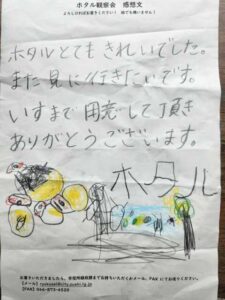 ホタル観察会 感想文
よろしければお書きください! 絵でも構いません!
ホタルとてもきれいでした。
また見に行きたいです。
いすまで用意して頂き
ありがとうございます。
ホタル
【メール】
【FAX】046-873-4520